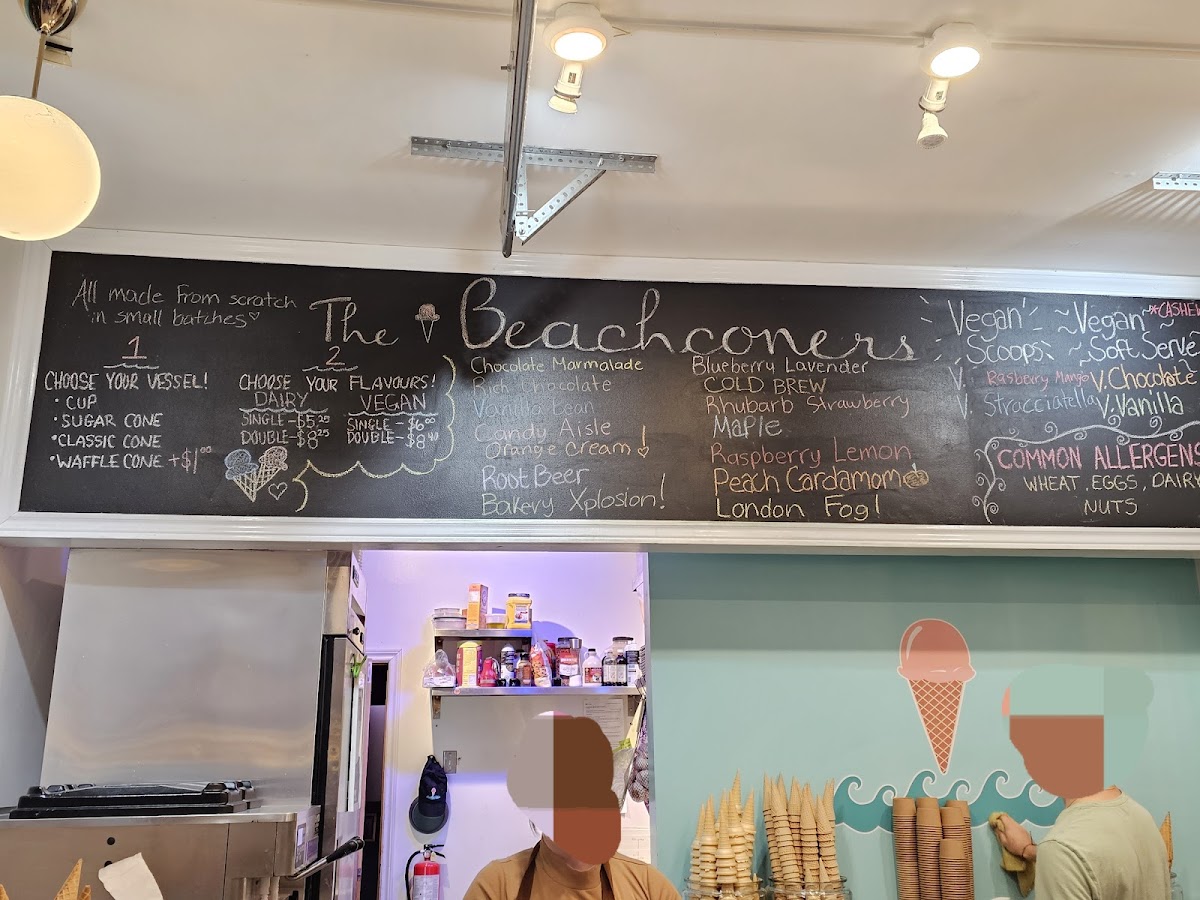 All made from scratch
in small batches♡
1
CHOOSE YOUR VESSEL!
• CUP
• SUGAR CONE
• CLASSIC CONE
• WAFFLE CONE +$1⁰⁰
2
CHOOSE YOUR FLAVOURS!
DAIRY
SINGLE-$5.25
DOUBLE-$8²⁵
VEGAN
SINGLE-$6⁰⁰
DOUBLE-$8⁴⁰
The Beachconers
Chocolate Marmalade
Rich Chocolate
Vanilla Bean
Candy Aisle
Orange Cream!
Root Beer
Bakery Xplosion!
Blueberry Lavender
COLD BREW
Rhubarb Strawberry
Maple
Raspberry Lemon
Peach Cardamom
London Fog!
Vegan
Scoops:
V. Raspberry Mango
V. Stracciatella
*CASHEW
~Vegan~
~Soft Serve
V. Chocolate
V. Vanilla
COMMON ALLERGENS
WHEAT, EGGS, DAIRY
NUTS